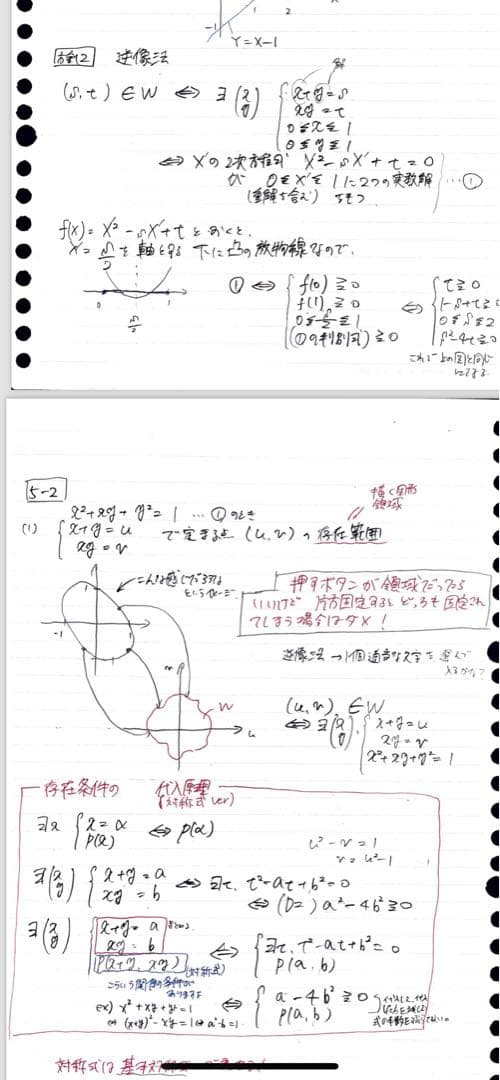 -1
1
2
Y=X-1
方針2 逆像法
(s,t)∈W ⇔ ∃(x y) { x+y=s
xy=t
0≦x≦1
0≦y≦1
⇔ Xの2次方程式 X²-sX+t=0
が 0≦X≦1に2つの実数解 …①
(重解も含む) をもつ
f(X)=X²-sX+tとおくと、
X=s/2を軸とする下に凸の放物線なので、
0 1
s/2
① ⇔ { f(0)≧0
f(1)≧0
0≦s/2≦1
(①の判別式)≧0
⇔ { t≧0
1-s+t≧0
0≦s≦2
s²-4t≧0
これで上の図と同じ
5-2
x²+xy+y²=1 …①のとき
(1) { x+y=u
xy=v
で定まる点(u,v)の存在範囲
描く図形
領域
こんな感じだろうな
というイメージ
押すボタンが領域だったら
いいけど 片方固定するとどっちも固定され
てしまう場合はダメ!
逆像法→1個適当な文字を選んで
W
u
(u,v)∈W
⇔∃(x y), { x+y=u
xy=v
x²+xy+y²=1
存在条件の 代入原理
(対称式ver)
∃x { x=α
P(x)
⇔ P(α)
u²-v=1
v=u²-1
∃(x y) { x+y=a
xy=b
⇔ ∃t, t²-at+b²=0
⇔ (D=) a²-4b²≧0
∃(x y) { x+y=a
xy=b
P(x+y, xy) (対称式)
⇔ { ∃t, t²-at+b²=0
P(a,b)
こういう関係の条件が
ありますよ
ex) x²+xy+y²=1
⇔(x+y)²-xy=1⇔a²-b=1
⇔ { a-4b²≧0
P(a,b)
対称式は